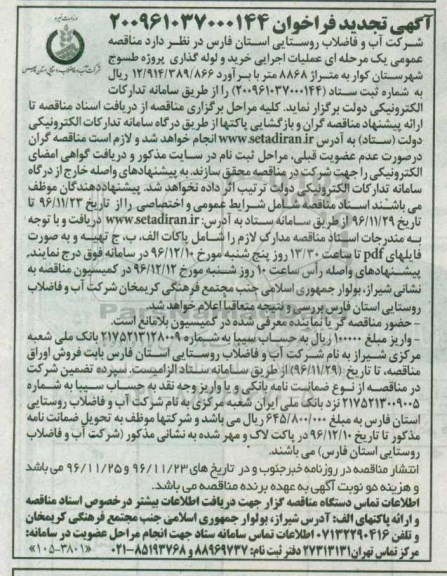 آگهی تجدید فراخوان ۲۰۰۹۶۱۰۳۷۰۰۰۱۴۴
شرکت آب و فاضلاب روستایی استان فارس در نظر دارد مناقصه
عمومی یک مرحله ای عملیات اجرایی خرید و لوله گذاری پروژه طسوج
شهرستان کوار به متراژ ۸۸۶۸ متر با برآورد ۱۲/۹۱۴/۳۸۹/۸۶۶ ریال
به شماره ثبت ستاد (۲۰۰۹۶۱۰۳۷۰۰۰۱۴۴) را از طریق سامانه تدارکات
الکترونیکی دولت برگزار نماید. کلیه مراحل برگزاری مناقصه از دریافت اسناد مناقصه تا
ارائه پیشنهاد مناقصه گران و بازگشایی پاکتها از طریق درگاه سامانه تدارکات الکترونیکی
دولت (ستاد) به آدرس www.setadiran.ir انجام خواهد شد و لازم است مناقصه گران
درصورت عدم عضویت قبلی، مراحل ثبت نام در سایت مذکور و دریافت گواهی امضای
الکترونیکی را جهت شرکت در مناقصه محقق سازند. به پیشنهادهای واصله خارج از درگاه
سامانه تدارکات الکترونیکی دولت ترتیب اثر داده نخواهد شد. پیشنهاددهندگان موظف
می باشند اسناد مناقصه شامل شرایط عمومی و اختصاصی را از تاریخ ۹۶/۱۱/۲۳ تا
تاریخ ۹۶/۱۱/۲۹ از طریق سامانه ستاد به آدرس: www.setadiran.ir دریافت و با توجه
به مندرجات اسناد مناقصه مدارک لازم را شامل پاکات الف، ب، ج تهیه و به صورت
فایلهای pdf تا ساعت ۱۳/۳۰ روز پنج شنبه مورخ ۹۶/۱۲/۱۰ در سامانه فوق درج نمایند.
پیشنهادهای واصله رأس ساعت ۱۰ روز شنبه مورخ ۹۶/۱۲/۱۲ در کمیسیون مناقصه به
نشانی شیراز، بولوار جمهوری اسلامی جنب مجتمع فرهنگی کریمخان شرکت آب و فاضلاب
روستایی استان فارس بررسی و نتیجه متعاقبا اعلام خواهد شد.
-حضور مناقصه گر یا نماینده معرفی شده در کمیسیون بلامانع است.
- واریز مبلغ ۱۰۰۰۰۰ ریال به حساب سیبا به شماره ۲۱۷۵۲۱۳۱۲۸۰۰۹ بانک ملی شعبه
مرکزی شیراز به نام شرکت آب و فاضلاب روستایی استان فارس بابت فروش اوراق
مناقصه، تا تاریخ (۹۶/۱۱/۲۹) از طریق سامانه ستاد الزامیست. سپرده تضمین شرکت
در مناقصه از نوع ضمانت نامه بانکی و یا واریز وجه نقد به حساب سیبا به شماره
۲۱۷۵۲۱۳۰۰۹۰۰۵ نزد بانک ملی ایران شعبه مرکزی به نام شرکت آب و فاضلاب روستایی
استان فارس به مبلغ ۶۴۵/۸۰۰/۰۰۰ ریال می باشد و شرکتها موظف به تحویل ضمانت نامه
مذکور تا تاریخ ۹۶/۱۲/۱۰ در پاکت لاک و مهر شده به نشانی مذکور (شرکت آب و فاضلاب
روستایی استان فارس) می باشند.
انتشار مناقصه در روزنامه خبر جنوب و در تاریخ های ۹۶/۱۱/۲۳ و ۹۶/۱۱/۲۵ می باشد
و هزینه دو نوبت آگهی به عهده برنده مناقصه می باشد.
اطلاعات تماس دستگاه مناقصه گزار جهت دریافت اطلاعات بیشتر درخصوص اسناد مناقصه
و ارائه پاکتهای الف: آدرس شیراز، بولوار جمهوری اسلامی جنب مجتمع فرهنگی کریمخان
و تلفن ۰۷۱۳۲۲۹۰۴۱۶ اطلاعات تماس سامانه ستاد جهت انجام مراحل عضویت در سامانه:
مرکز تماس تهران ۲۷۳۱۳۱۳۱ دفتر ثبت نام: ۸۸۹۶۹۷۳۷ و ۸۵۱۹۳۷۶۸-۰۲۱ «۳۸۰۱-۱۰۵»